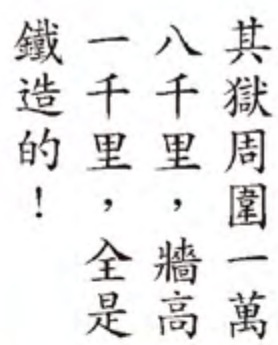 其獄周圍一萬
八千里，牆高
一千里，全是
鐵造的！